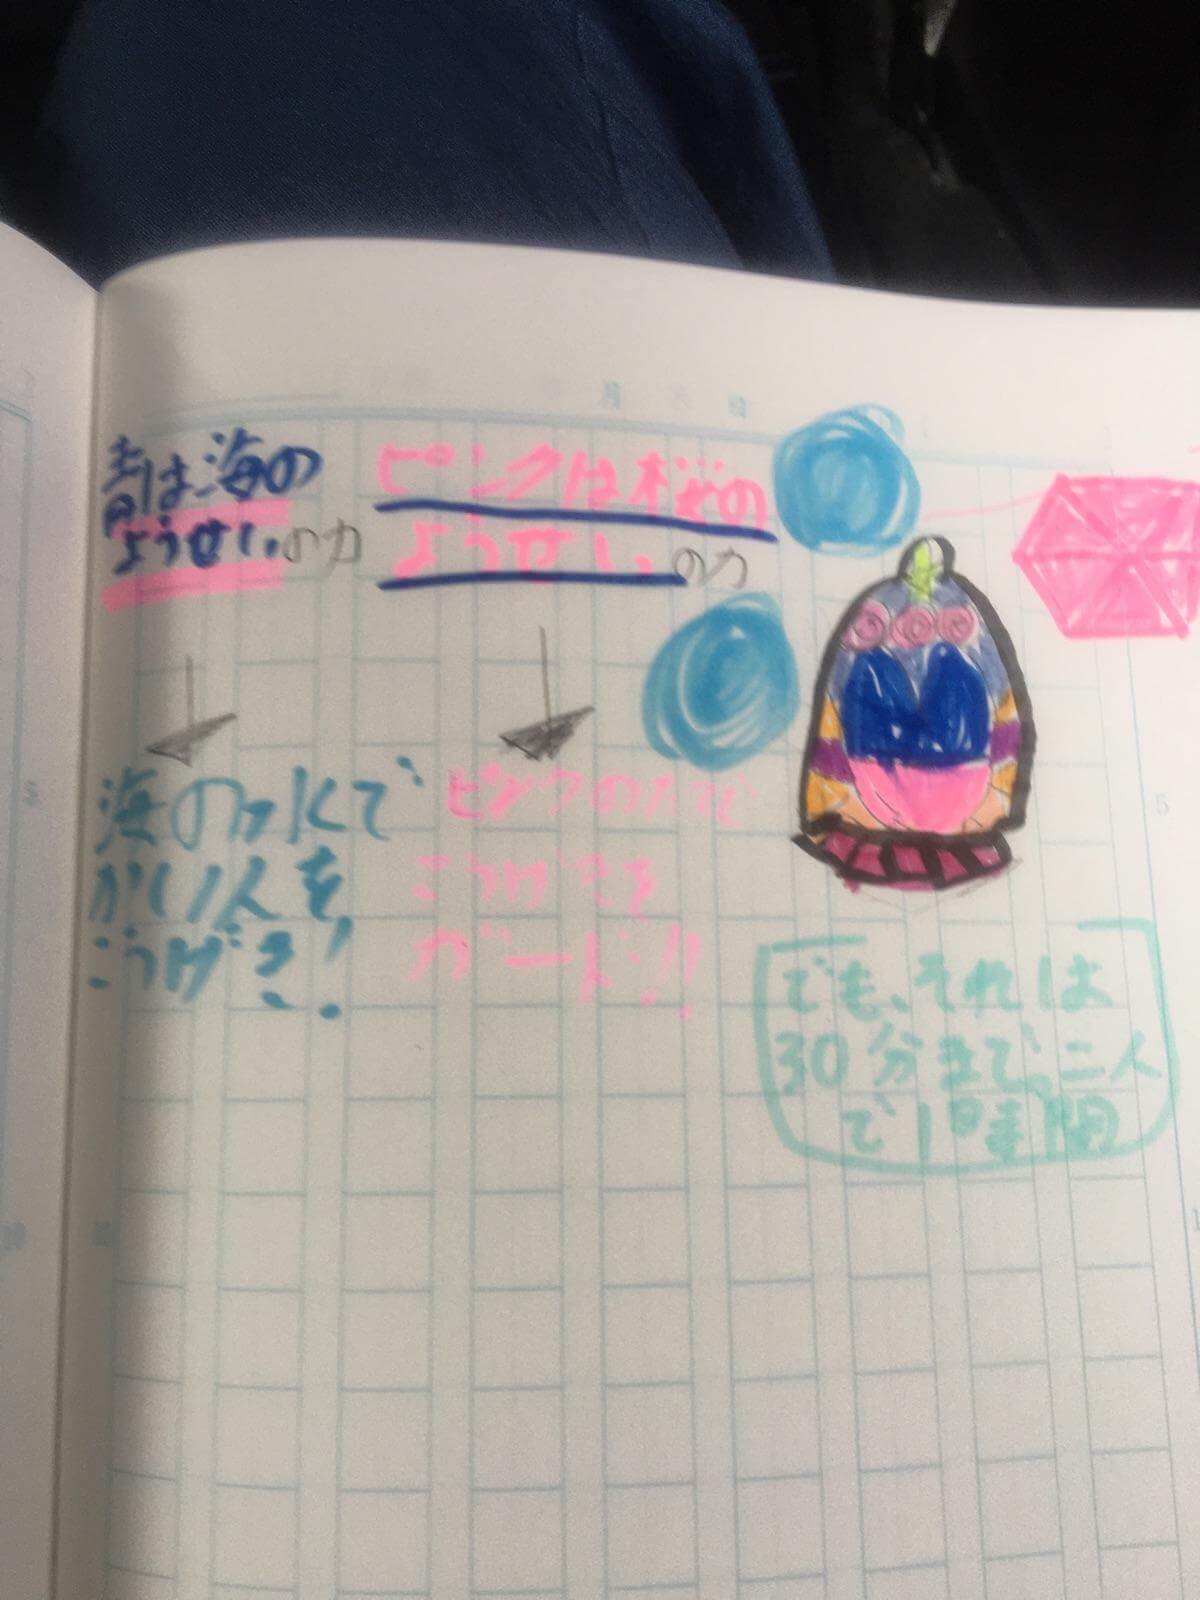 月 日
青は海の
ようせいの力
ピンクは桜の
ようせいの力
海の水で
かい人を
こうげき!
ピンクのたてで
こうげきを
ガード!!
でも、それは
30分まで。二人
で1時間
5
5
10